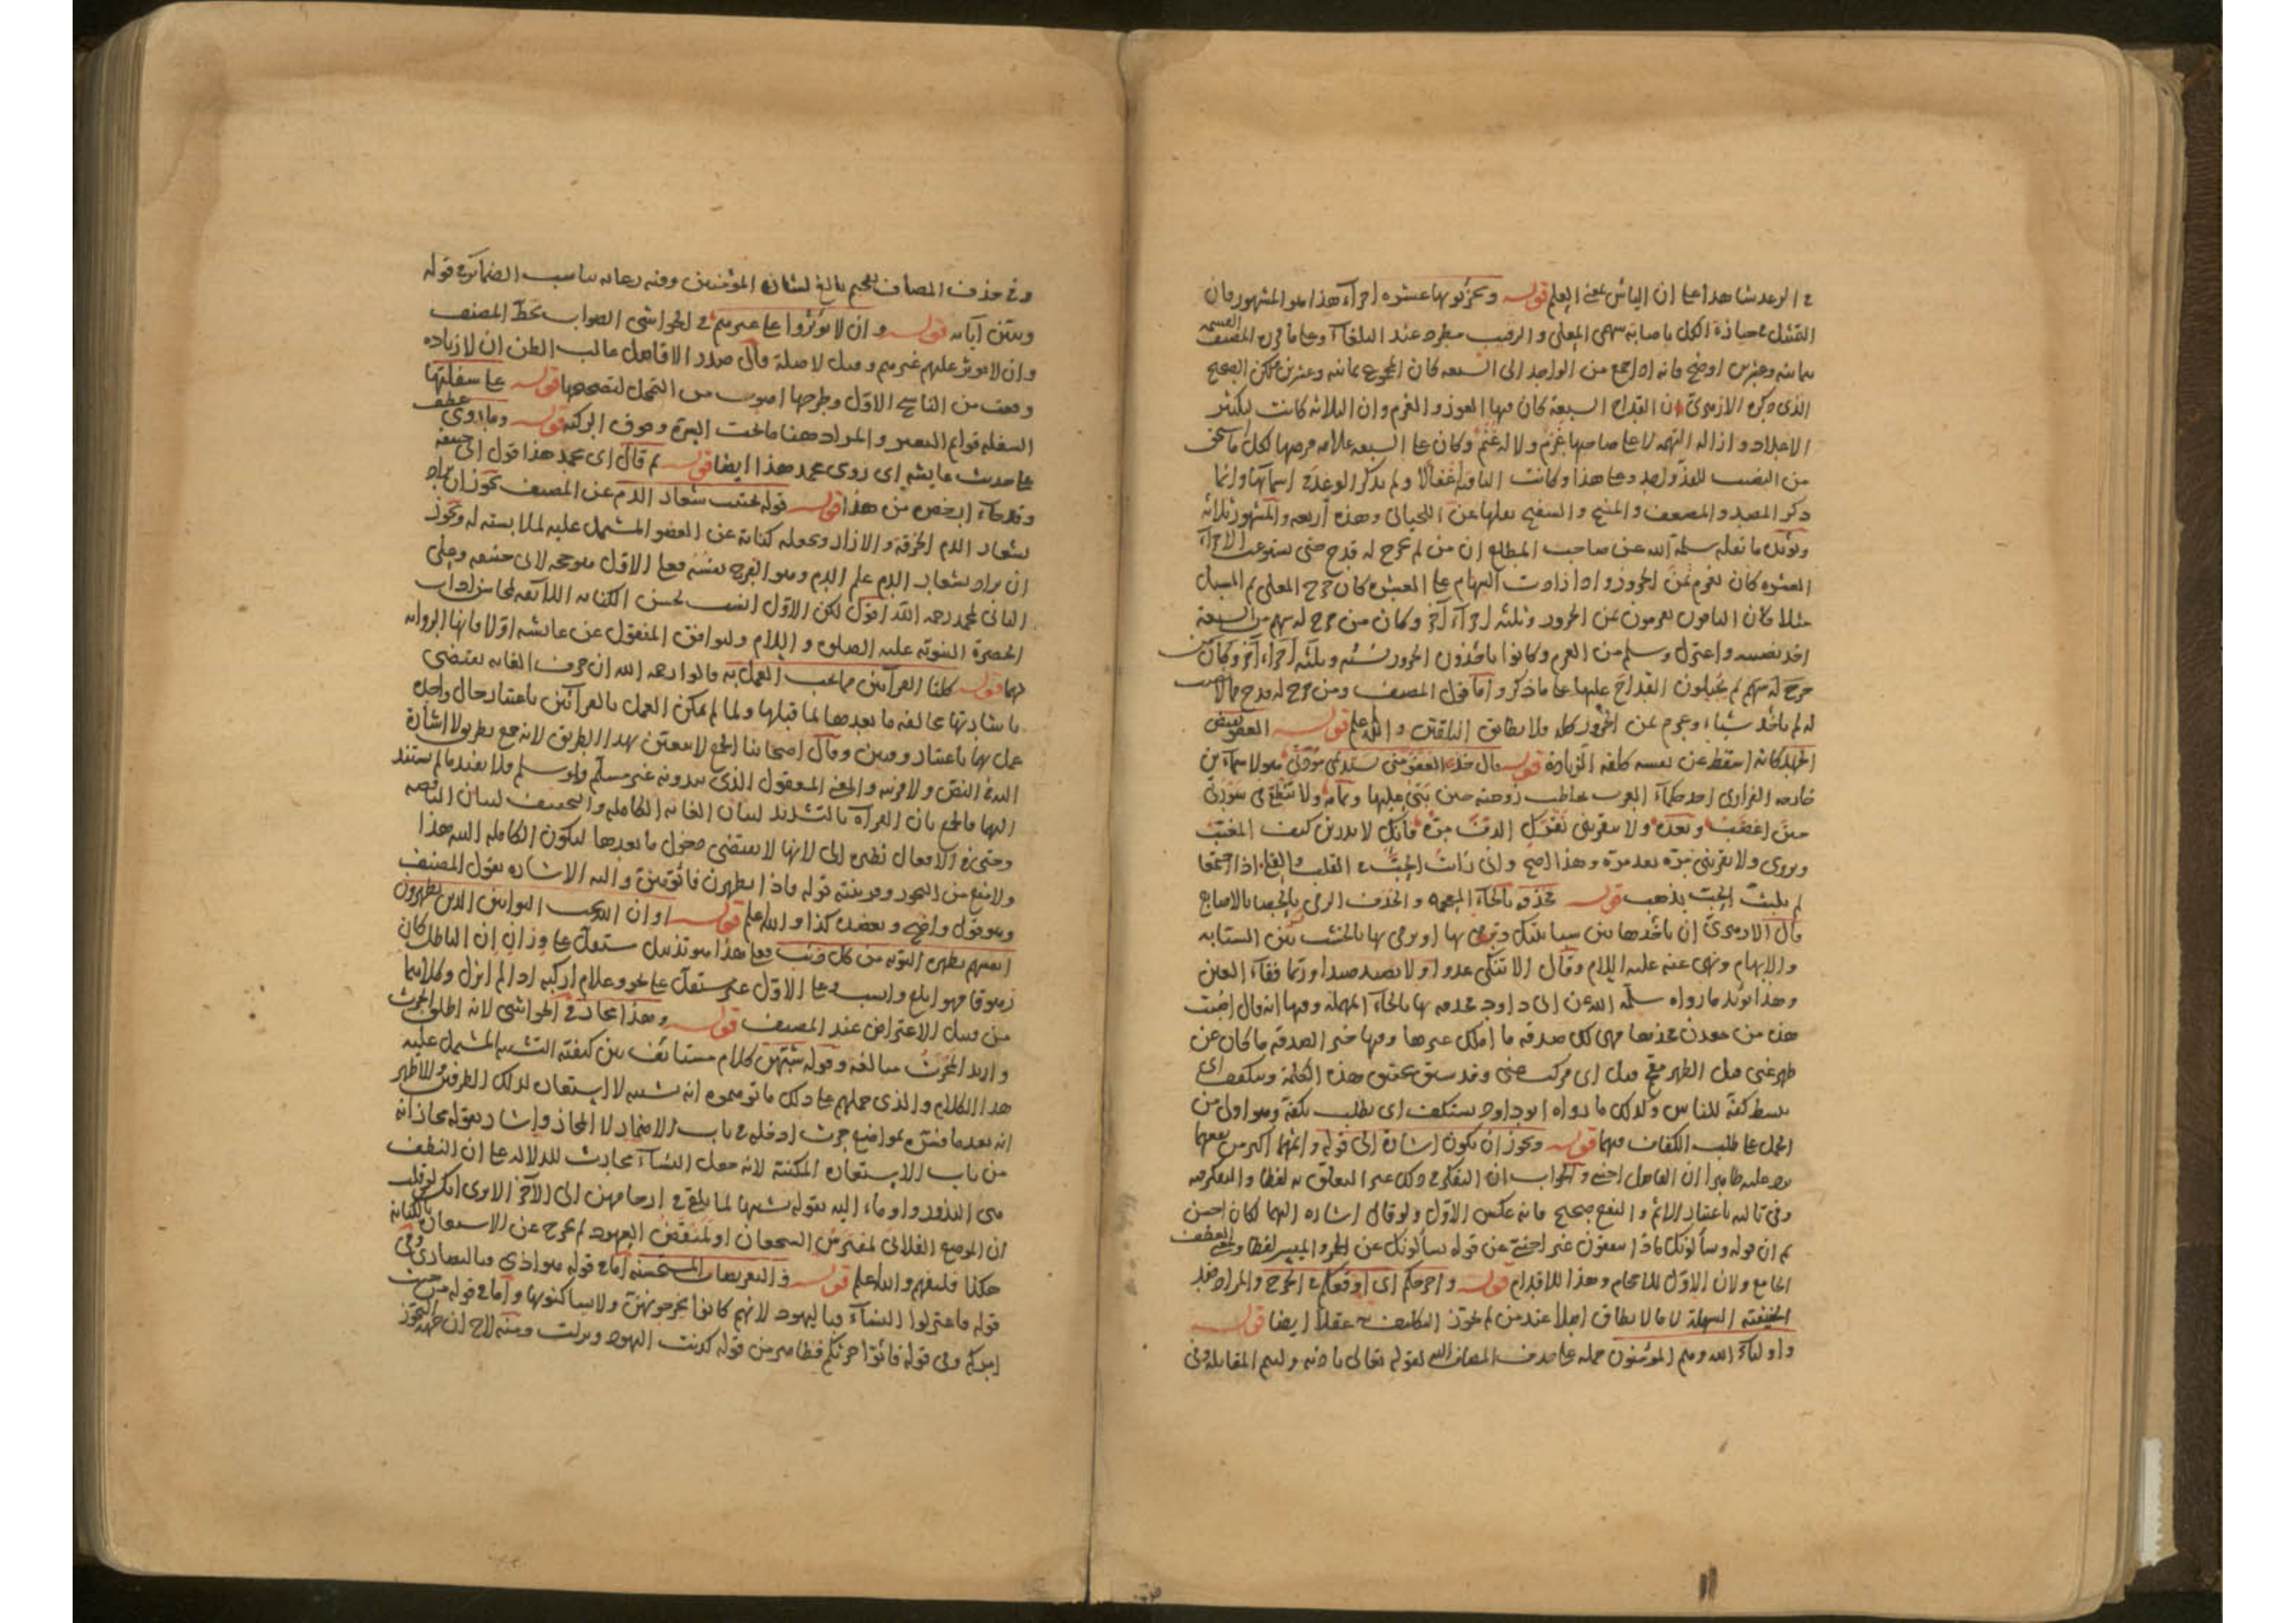 في الرعد شاهدا على ان اليأس بمعنى العلم قوله ويجزئونها عشرة اجزاء هذا هو المشهور فان
التمثيل بحيازة الكل باصابة سهمي المعلى والرقيب مطرد عند البلغاء وعلى ما قرره المصنف القسمة
بثمانية وعشرين اوضح فانه اذا جمع من الواحد الى السبعة كان المجموع ثمانية وعشرين لكن الصحيح
الذي ذكره الازهري ان القداح السبعة كان فيها الفوز والغرم وان الثلاثة كانت لتكثير
الاعداد وازالة التهمة لا على صاحبها غرم ولا له غنم وكان على السبعة علامة فرضها لكل ما يستحق
من النصيب للفذ واحد وعلى هذا وكانت الباقية اغفالا ولم يذكر الوغد في اسمائها وانما
ذكر المصدر والمضعف والمنيح والسفيح نقلها عن اللحياني وهذه أربعة والمشهور ثلاثة
ويؤيد ما نقله سلمه الله عن صاحب المطلع ان من لم يخرج له قدح حتى يستوعب الاجزاء
العشرة كان يغرم ثمن الجزور واذا زادت السهام على العشرة كان خرج المعلى ثم المسبل
مثلا كان الباقون يغرمون ثمن الجزور وثلثة اجزاء أخر وكان من خرج له سهم من السبعة
اخذ نصيبه واعتزل وسلم من الغرم وكانوا ياخذون الجزور نسئة وثلثة اجزاء أخر وكان من
خرج له سهم لم يجيلون القداح عليها على ما ذكر واما قول المصنف ومن خرج له قدح مما لا نصيب
له لم يأخذ شيئا وغرم ثمن الجزور كله فلا يطابق الناقلين والله اعلم قوله العفو نقيض
الجهد كانه اسقط عن نفسه كلفة الزيادة قوله قال خذي العفو مني تستديمي مودتي هو لاسماء بن
خارجة الفزاري احد حكماء العرب يخاطب زوجته حين بنى عليها وتمامه ولا تنطقي في سورتي
حين اغضب وبعده ولا تنقريني نقرك الدف مرة فانك لا تدرين كيف المغيب
ويروى ولا تقربيني مرة بعد مرة وهذا اصح واني رأيت الحب في القلب والقلى اذا اجتمعا
لم يلبث الحب يذهب قوله يخذفه بالخاء المعجمة والخذف الرمي بالحصا بالاصابع
قال الازهري ان ياخذها بين سبابتيك وترمي بها او يرمي بها بالخشب بين السبابة
والابهام ونهى عنه عليه السلام وقال لا تنكى عدوا ولا يصيد صيدا وربما فقأ العين
وهذا يؤيد ما رواه سلمه الله عن ابي داود فحذفه بها بالحاء المهملة وفيها انه قال اصبت
هذه من معدن فخذها فهي لك صدقة ما املك غيرها وفيها خير الصدقة ما كان عن
ظهر غنى قيل الظهر مقحم وقيل اي مركب غنى وقد سبق تحقيق هذه الكلمة ويتكفف اي
يبسط كفه للناس وكذلك ما رواه ابو داود يستكف اي يطلب بكفه وهو اولى من
الحمل على طلب الكفاف فيهما قوله ويجوز ان يكون اشارة الى قوله واثمهما اكبر من نفعهما
يرد عليه ظاهرا ان الفاصل اجنبي والجواب ان التفكر في ذلك عين التعلق به لفظا والتفكر فيه
وفي تاليه باعتبار الاثم والنفع صحيح فانه عكس الاول ولو قال اشارة اليهما لكان احسن
ثم ان قوله ويسألونك ماذا ينفقون غير اجنبي عن قوله يسألونك عن الخمر والميسر لفظا ومعنى للعطف
الجامع ولان الاول للاحجام وهذا للاقدام قوله واحرجكم اي اوقعكم في الحرج والمراد ضد
الحنيفية السهلة لا ما لا يطاق اصلا عند من لم يجوز التكليف به عقلا ايضا قوله
واولياء الله وهم المؤمنون حمله على حذف المضاف لقوله تعالى باذنه وليتم المقابلة وفي
وفي حذف المضاف تفخيم بالغ لشان المؤمنين وفيه رعاية تناسب الضمائر في قوله
ويبين آياته قوله وان لا يؤثروا على غيرهم في الحواشي الصواب بخط المصنف
وان لا يوثر عليهم غيرهم وقيل لا صلة قال صدر الافاضل غالب الظن ان لا زيادة
وقعت من الناسخ الاول وطرحها اصوب من التمحل لتصحيحها قوله على سفلتها
السفلة قوائم البعير والمراد ههنا ما تحت السرة وفوق الركبة قوله وما روى عطف
على حديث عايشة اي روى محمد هذا ايضا قوله ثم قال اي محمد هذا قول ابي حنيفة
وقد جاء ارخص من هذا قوله قوله يجتنب شعار الدم عن المصنف يجوز ان يراد
بشعار الدم الخرقة والازار وجعله كناية عن العضو المشتمل عليه لملابسته له ويجوز
ان يراد بشعار الدم علم الدم وهو الفرج نفسه فعلى الاول هو حجة لابي حنيفة وعلى
الثاني لمحمد رحمه الله اقول لكن الاول انسب لحسن الكناية اللائقة لمحاسن اداب
الحضرة النبوية عليه الصلوة والسلام وليوافق المنقول عن عائشة اولا فانها الرواية
فيها قوله كلتا القرآءتين مما يجب العمل به قالوا رحمه الله ان حرف الغاية يقتضي
باشارتها مخالفة ما بعدها لما قبلها ولما لم يمكن العمل بالقرآءتين باعتبار حال واحدة
عمل بها باعتبار وقتين وقال اصحابنا الجمع لا يتعين بهذا الطريق لانه جمع بطريق لا اشارة
اليه في النص ولا قرينة والمعنى المعقول الذي يبدونه غير مسلم ولو سلم فلا يفيد ما لم يستند
اليها فالجمع بان القرآة بالتشديد لبيان الغاية الكاملة والتخفيف لبيان الناقصة
وحتى في الافعال نظيره الى لانها لا يقتضي دخول ما بعدها ليكون الكاملة البتة هذا
ولا منع من التجوز وقرينته قوله فاذا تطهرن فاتوهن واليه الاشارة بقول المصنف
وهو قول واضح ويعضده كذا والله اعلم قوله او ان الله يحب التوابين الذين يطهرون
انفسهم بطهرة التوبة من كل ذنب فعلى هذا هو تذييل مستقل على وزان إن الباطل كان
زهوقا فهو ابلغ وانسب وعلى الاول غير مستقل على نحو وعلام اركبه اذا لم انزل وكلاهما
من قبيل الاعتراض عند المصنف قوله وهذا مجاز في الحواشي لانه اطلق الحرث
واريد المحرث مبالغة وقوله شبهن كلام مستانف بين كيفية التشبيه المشتمل عليه
هذا الكلام والذي حملهم على ذلك ما توهموه انه تشبيه لا استعارة لذكر الطرفين والاظهر
انه بعد ما فسره بمواضع حرث ادخله في باب الاضمار لا المجاز واشار بقوله مجاز انه
من باب الاستعارة المكنية لانه جعل النساء محارث للدلالة على ان النطف
هي البذور واوماء اليه بقوله تشبيها لما يلقى في ارحامهن الى الآخر الا ترى انك لو قلت
ان الموضع الفلاني لمفترس الشجعان او لمنقض العهود لم يخرج عن الاستعارة بالكناية
هكذا فليفهم والله اعلم قوله والتعريضات المستحسنة اما في قوله هو اذى فبالنصارى وفي
قوله فاعتزلوا النساء فباليهود لانهم كانوا يخرجونهن ولا يساكنوها واما في قوله من حيث
امركم وفي قوله فاتوا حرثكم فظاهر من قوله كذبت اليهود ونزلت ومنه لاح ان جهة التجوز